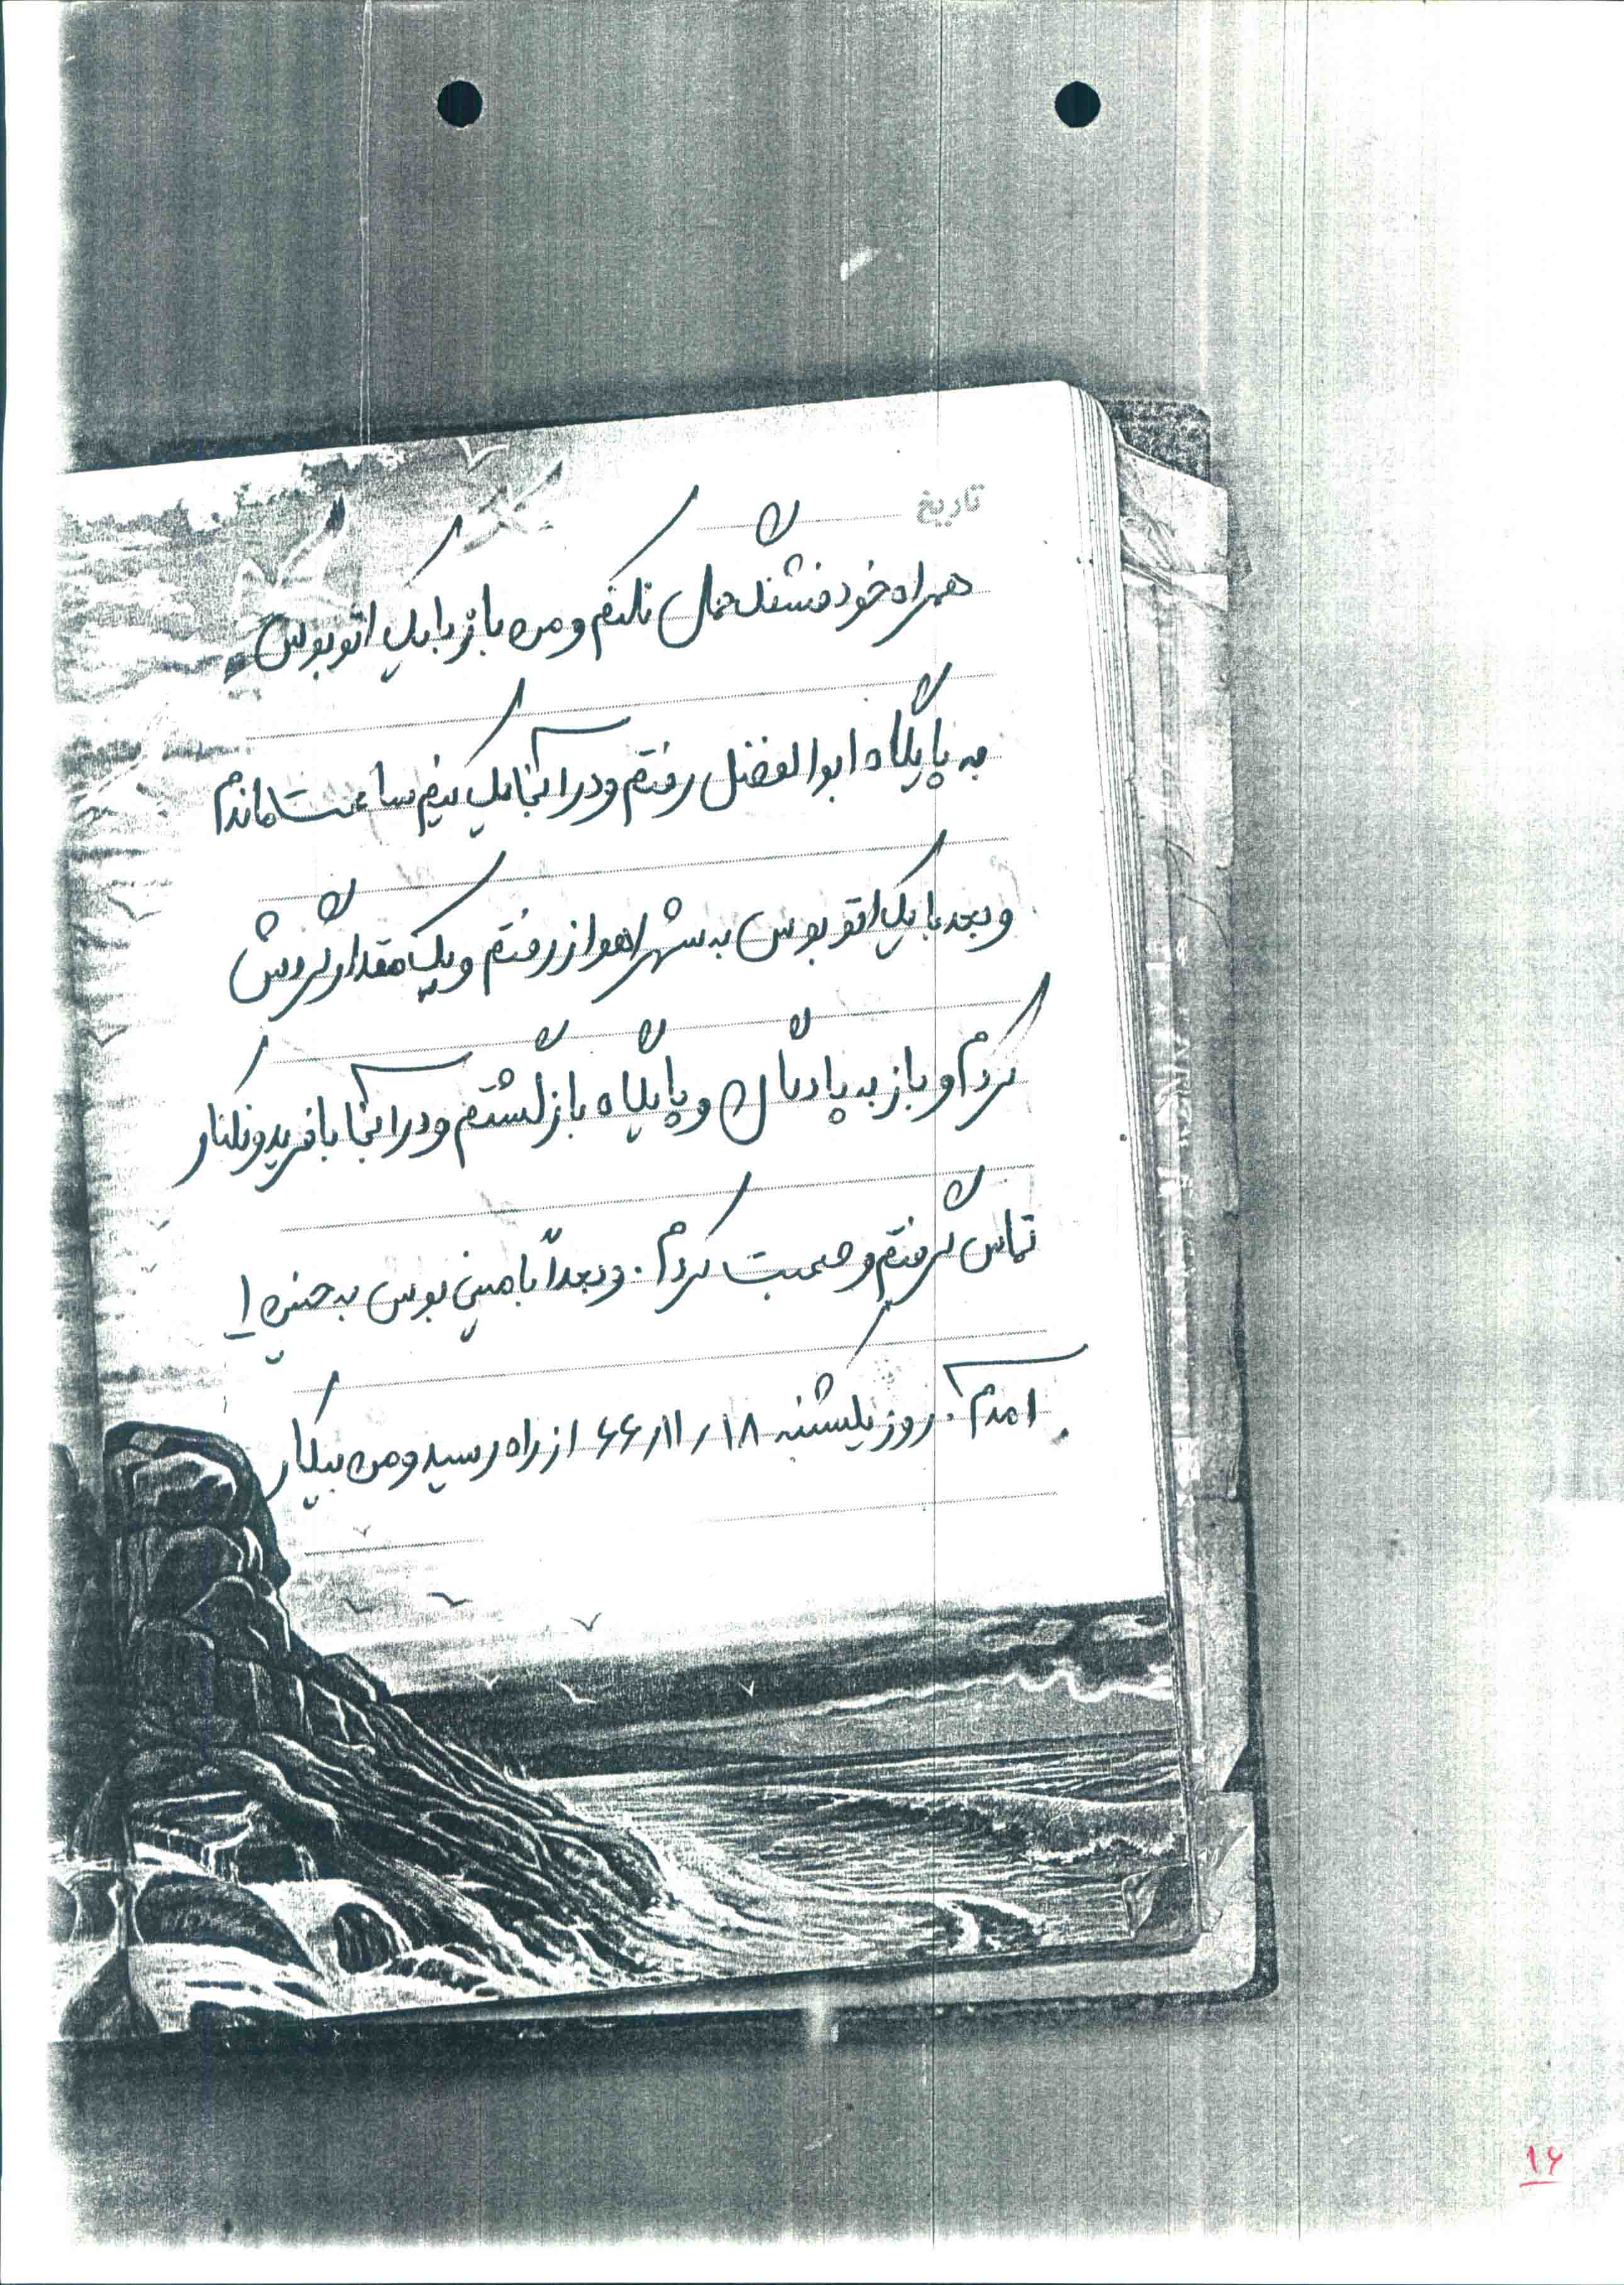 تاریخ
همراه خود فشنگ حمل نکنم و من باز با یک اتوبوس
به پایگاه ابوالفضل رفتم و در آنجا یک نیم ساعت ماندم
و بعد با یک اتوبوس به شهر اهواز رفتم و یک مقدار گردش
کردم و باز به پادگان و پایگاه بازگشتم و در آنجا با فریدونکنار
تماس گرفتم و صحبت کردم. و بعداً با مینی بوس به
آمدم. روز یکشنبه ۱۸ ر ۱۱ ر ۶۶ از راه رسید و من بیکار
۱۶